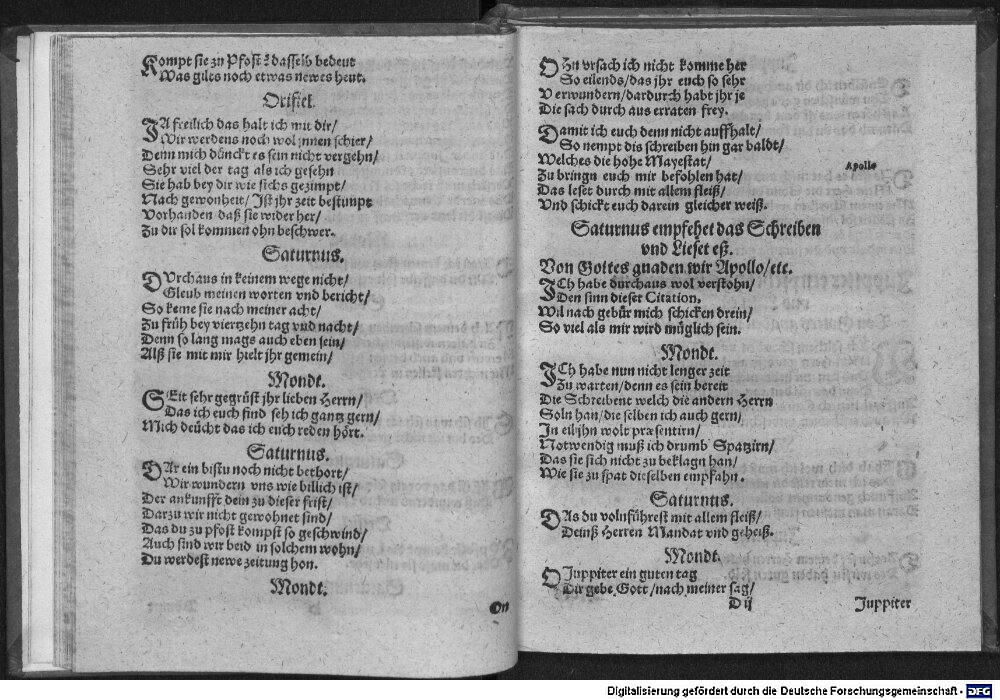 Kompt sie zu Pfost dasselb bedeut
Was gilts noch etwas newes heut.
Orifiel.
JA freilich das halt ich mit dir/
Wir werdens noch wol innen schier/
Denn mich dünckt es sein nicht vergehn/
Sehr viel der tag als ich gesehn
Sie hab bey dir wie sichs gezimpt/
Nach gewonheit/ Ist jhr zeit bestimpt
Vorhanden daß sie wider her/
Zu dir sol kommen ohn beschwer.
Saturnus.
DVrchaus in keinem wege nicht/
Gleub meinen worten vnd bericht/
So keme sie nach meiner acht/
Zu früh bey vierzehn tag vnd nacht/
Denn so lang mags auch eben sein/
Alß sie mit mir hielt jhr gemein/
Mondt.
SEit sehr gegrüst jhr lieben Herrn/
Das ich euch find seh ich gantz gern/
Mich deücht das ich euch reden hört.
Saturnus.
DAr ein bistu noch nicht bethort/
Wir wundern vns wie billich ist/
Der ankunfft dein zu dieser frist/
Darzu wir nicht gewohnet sind/
Das du zu pfost kompst so geschwind/
Auch sind wir beid in solchem wohn/
Du werdest newe zeitung hon.
Mondt.
On
OHn vrsach ich nicht komme her
So eilends/das jhr euch so sehr
Verwundern/dardurch habt jhr je
Die sach durch aus erraten frey.
Damit ich euch denn nicht auffhalt/
So nempt dis schreiben hin gar baldt/
Welches die hohe Mayestat/
Apollo
Zu bringn euch mir befohlen hat/
Das leset durch mit allem fleiß/
Vnd schickt euch darein gleicher weiß.
Saturnus empfehet das Schreiben
vnd Lieset eß.
Von Gottes gnaden wir Apollo/etc.
JCh habe durchaus wol verstohn/
Den sinn dieser Citation.
Wil nach gebür mich schicken drein/
So viel als mir wird müglich sein.
Mondt.
JCh habe nun nicht lenger zeit
Zu warten/denn es sein bereit
Die Schreibent welch die andern Herrn
Soln han/die selben ich auch gern/
In eil jhn wolt præsentirn/
Notwendig muß ich drumb Spatzirn/
Das sie sich nicht zu beklagn han/
Wie sie zu spat dieselben empfahn.
Saturnus.
DAs du volnführest mit allem fleiß/
Deinß Herren Mandat vnd geheiß.
Mondt.
O Juppiter ein guten tag
Dir gebe Gott/nach meiner sag/
D ij
Juppiter
Digitalisierung gefördert durch die Deutsche Forschungsgemeinschaft - DFG